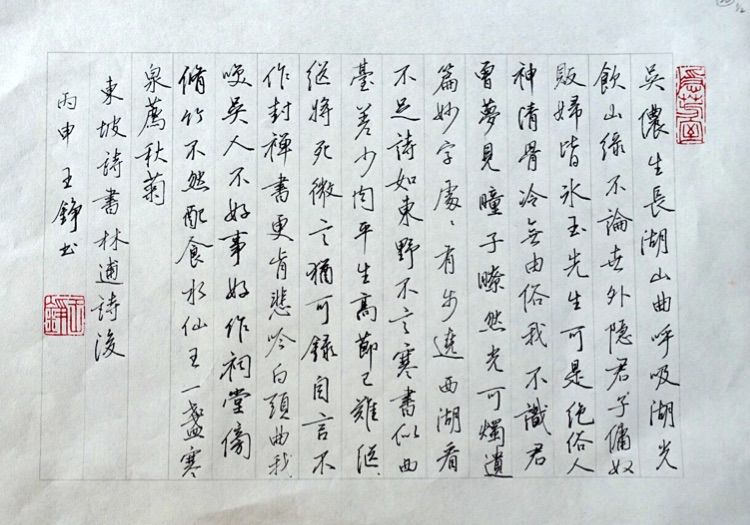 吳儂生長湖山曲呼吸湖光
飲山綠不論世外隱君子傭奴
販婦皆冰玉先生可是絕俗人
神清骨冷無由俗我不識君
曾夢見瞳子瞭然光可燭遺
篇妙字處〻有步遶西湖看
不足詩如東野不言寒書似西
臺差少肉平生高節已難继
继將死微言猶可錄自言不
作封禪書更肯悲吟白頭曲我
笑吳人不好事好作祠堂傍
脩竹不然配食水仙王一盞寒
泉薦秋菊
東坡詩書林逋詩後
丙申王錚书